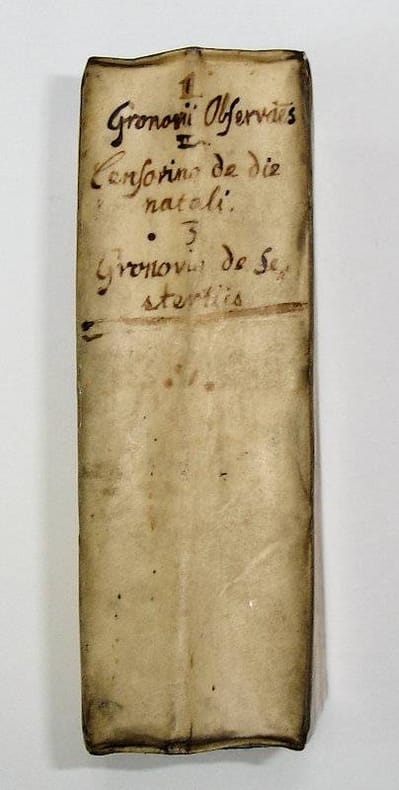 1
Gronovii Observatẽs
II
Censorinᵍ de die
natali.
3
Gronoviᵍ de Se,
stertiis